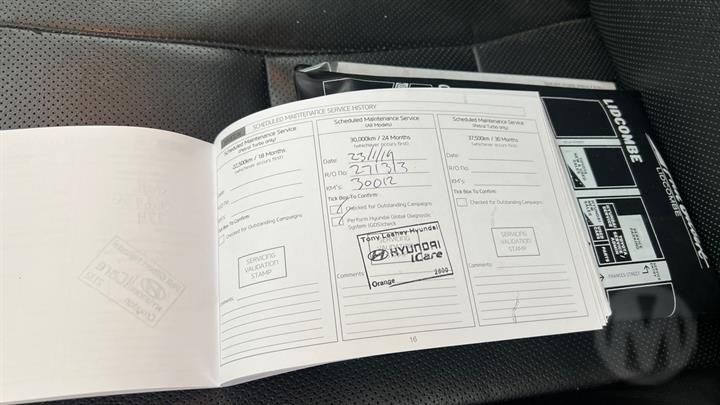 SCHEDULED MAINTENANCE SERVICE HISTORY
Scheduled Maintenance Service
(Petrol Turbo only)
22,500km / 18 Months
(whichever occurs first)
Date:
R/O No:
KM's:
Tick Box To Confirm:
Checked for Outstanding Campaigns
SERVICING
VALIDATION
STAMP
Comments:
Scheduled Maintenance Service
(All Models)
30,000km / 24 Months
(whichever occurs first)
Date: 23/1/19
R/O No: 27313
KM's: 30012
Tick Box To Confirm:
Checked for Outstanding Campaigns
Perform Hyundai Global Diagnostic
System (GDS)check
SERVICING
Tony Leahey Hyundai
HYUNDAI
iCare
Orange 2800
Comments:
Scheduled Maintenance Service
(Petrol Turbo only)
37,500km / 30 Months
(whichever occurs first)
Date:
R/O No:
KM's:
Tick Box To Confirm:
Checked for Outstanding Campaigns
SERVICING
VALIDATION
STAMP
Comments:
16
LIDCOMBE
LIDCOMBE
FRANCES STREET
M